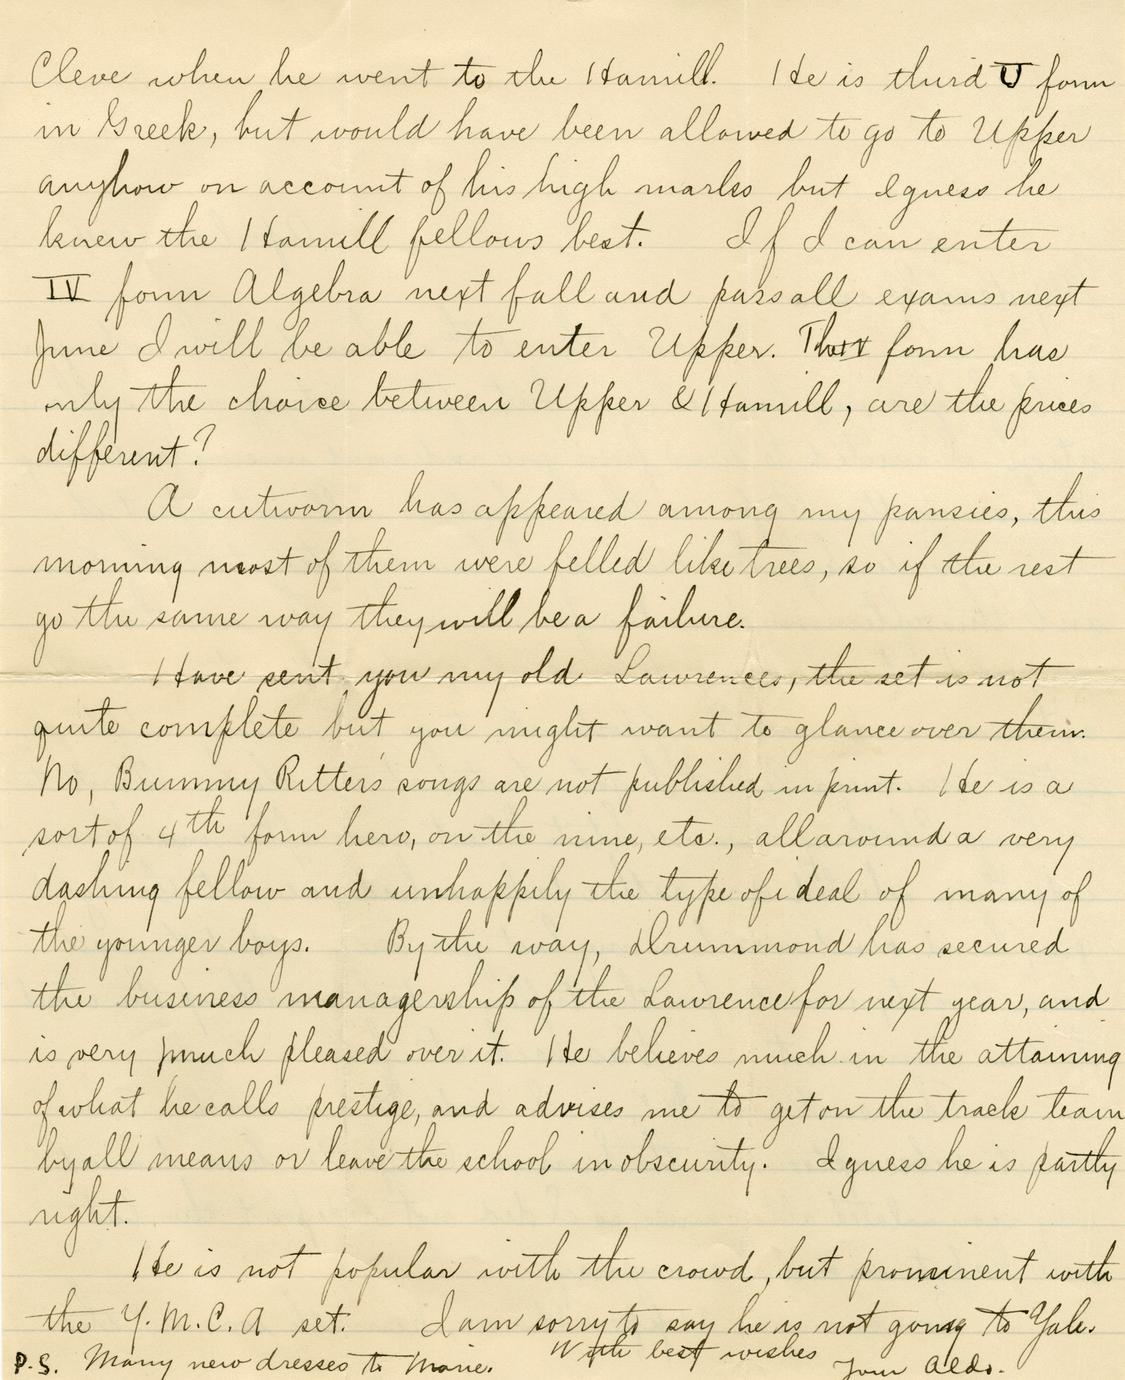 Cleve when he went to the Hamill. He is third form
in Greek, but would have been allowed to go to Upper
anyhow on account of his high marks but I guess he
knew the Hamill fellows best. If I can enter
IV form Algebra next fall and pass all exams next
June I will be able to enter Upper. form has
only the choice between Upper & Hamill, are the prices
different?
A cutworm has appeared among my pansies, this
morning most of them were felled like trees, so if the rest
go the same way they will be a failure.
Have sent you my old Lawrences, the set is not
quite complete but you might want to glance over them.
No, Bummy Ritter's songs are not published in print. He is a
sort of 4th form hero, on the nine, etc., all around a very
dashing fellow and unhappily the type of ideal of many of
the younger boys. By the way, Drummond has secured
the business managership of the Lawrence for next year, and
is very much pleased over it. He believes much in the attaining
of what he calls prestige, and advises me to get on the track team
by all means or leave the school in obscurity. I guess he is partly
right.
He is not popular with the crowd, but prominent with
the Y.M.C.A set. I am sorry to say he is not going to Yale.
With best wishes
Your Aldo.
P.S. Many new dresses to Marie.